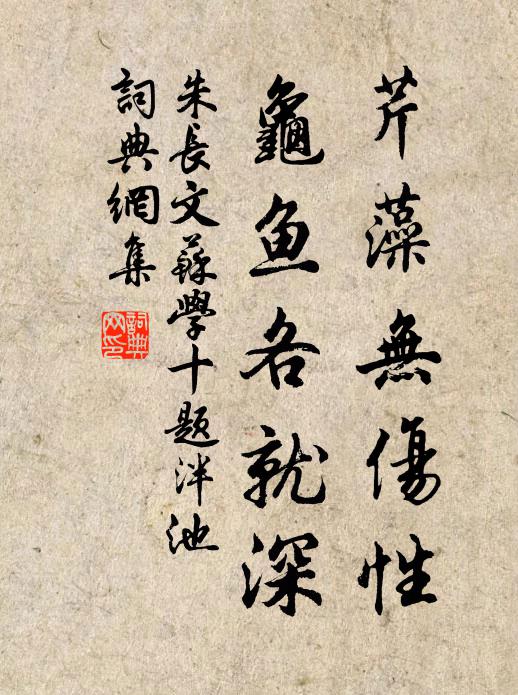 芹藻無傷性
龜鱼各就深
朱長文蘇學十題泮池
詞典網集
詞典
网印